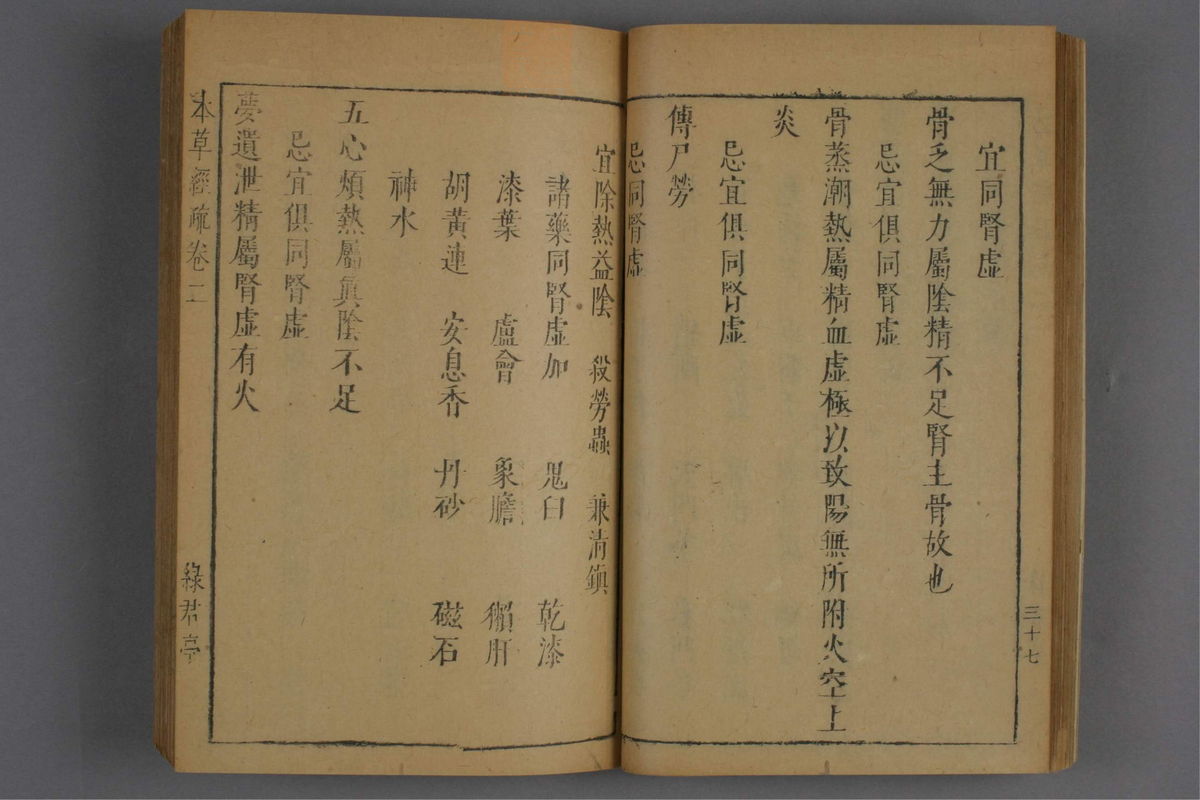 宜同腎虛
骨乏無力屬陰精不足腎主骨故也
忌宜俱同腎虛
骨蒸潮熱屬精血虛極以致陽無所附火空上
炎
忌宜俱同腎虛
傳尸勞
忌同腎虛
三十七
宜除熱益陰 殺勞蟲 兼清鎮
諸藥同腎虛加 鬼臼 乾漆
漆葉 盧會 象膽 獺肝
胡黃連 安息香 丹砂 磁石
神水
五心煩熱屬眞陰不足
忌宜俱同腎虛
夢遺泄精屬腎虛有火
本草經疏卷二
綠君亭